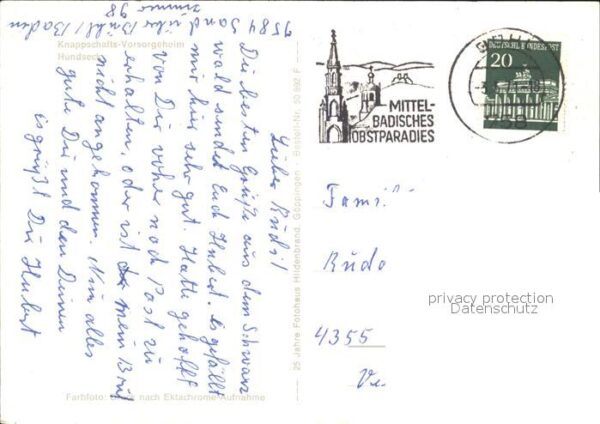 7584 Sand über Bühl/Baden
Zimmer 98
Knappschafts-Vorsorgeheim
Hundseck
Lieber Rudi!
Die besten Grüße aus dem Schwarz
wald sendet Euch Hubert. es gefällt
mir hier sehr gut. Hatte gehofft
von Dir vorher noch Post zu
erhalten, oder ist mein Brief
nicht angekommen. Nun alles
gute Dir und den Deinen
es grüßt Dich Hubert
Farbfoto: nach Ektachrome-Aufnahme
25 Jahre Fotohaus Hildenbrand, Göppingen · Bestell-Nr. 50 892 F
MITTEL-
BADISCHES
OBSTPARADIES
DEUTSCHE BUNDESPOST
20
758
Famil
Rudo
privacy protection
Datenschutz
4355